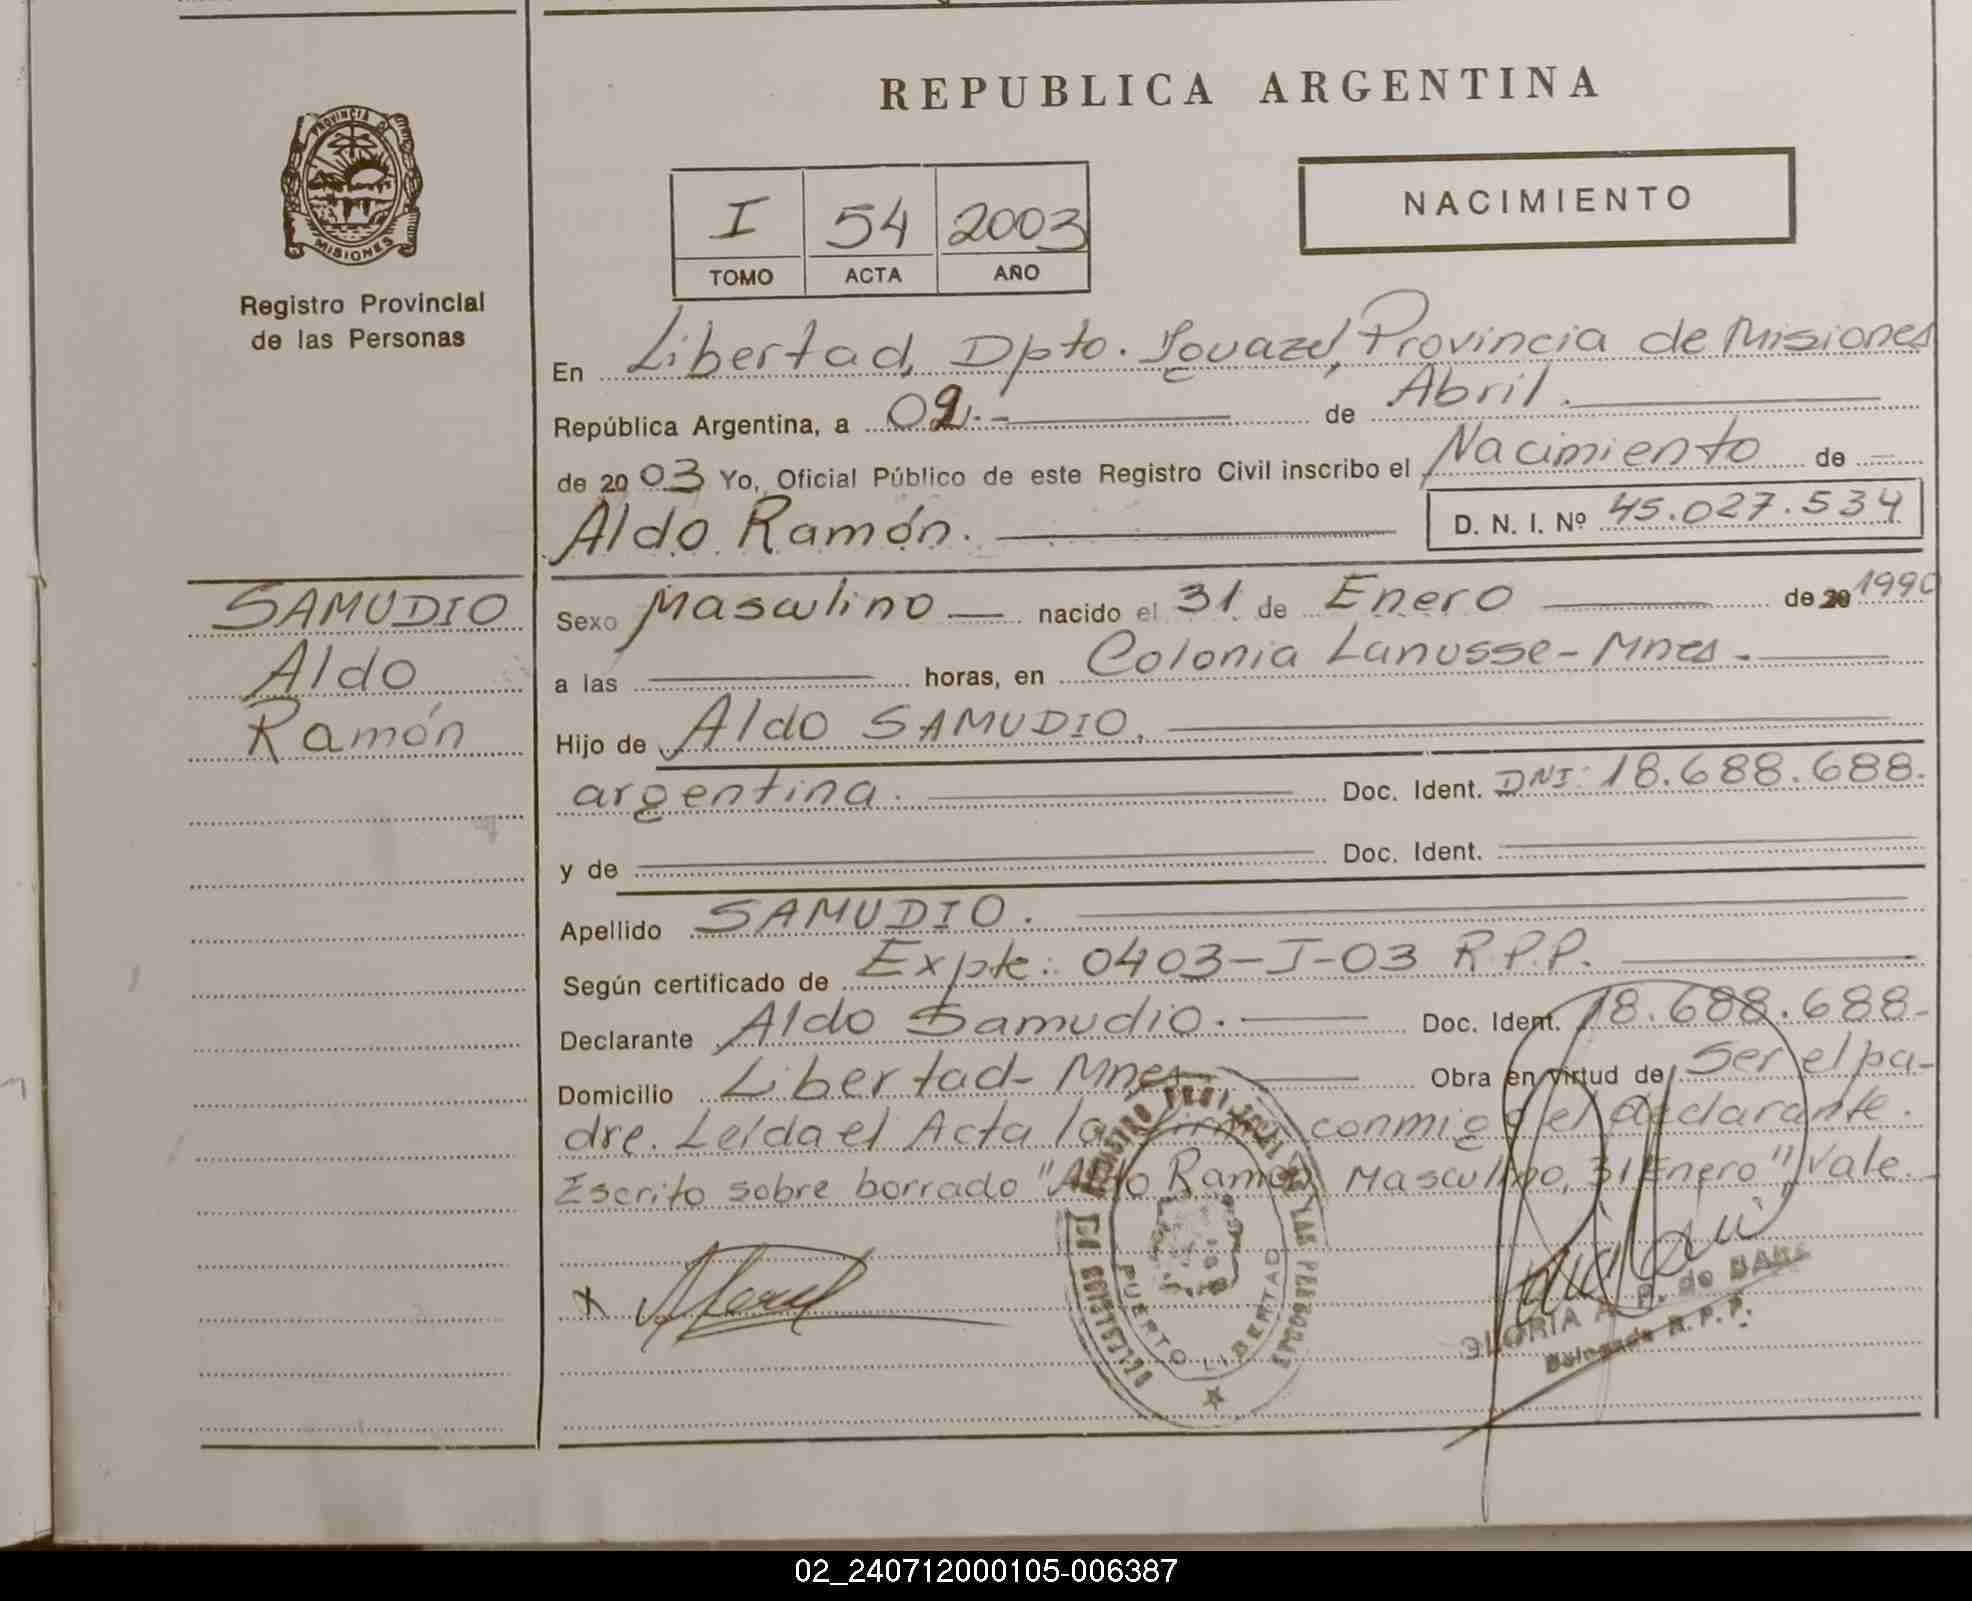 REPUBLICA ARGENTINA
PROVINCIA DE
MISIONES
Registro Provincial
de las Personas
I 54 2003
TOMO ACTA AÑO
NACIMIENTO
En Libertad, Dpto. Iguazú, Provincia de Misiones
República Argentina, a 02.- de Abril.
de 2003 Yo, Oficial Público de este Registro Civil inscribo el Nacimiento de
Aldo Ramón. D. N. I. Nº 45.027.534
SAMUDIO
Aldo
Ramón
Sexo Masculino nacido el 31 de Enero de 20 1990
a las horas, en Colonia Lanusse-Mnes.
Hijo de Aldo SAMUDIO.
argentina. Doc. Ident. DNI: 18.688.688.
y de Doc. Ident.
Apellido SAMUDIO.
Según certificado de Expte: 0403-I-03 R.P.P.
Declarante Aldo Samudio. Doc. Ident. 18.688.688-
Domicilio Libertad-Mnes Obra en virtud de Ser el pa-
dre. Leída el Acta la firma conmigo el declarante.
Escrito sobre borrado "Aldo Ramón, Masculino, 31 Enero", Vale.
X
PUERTO LIBERTAD
GLORIA A. P. de
Delegada R. P. P.
02_240712000105-006387